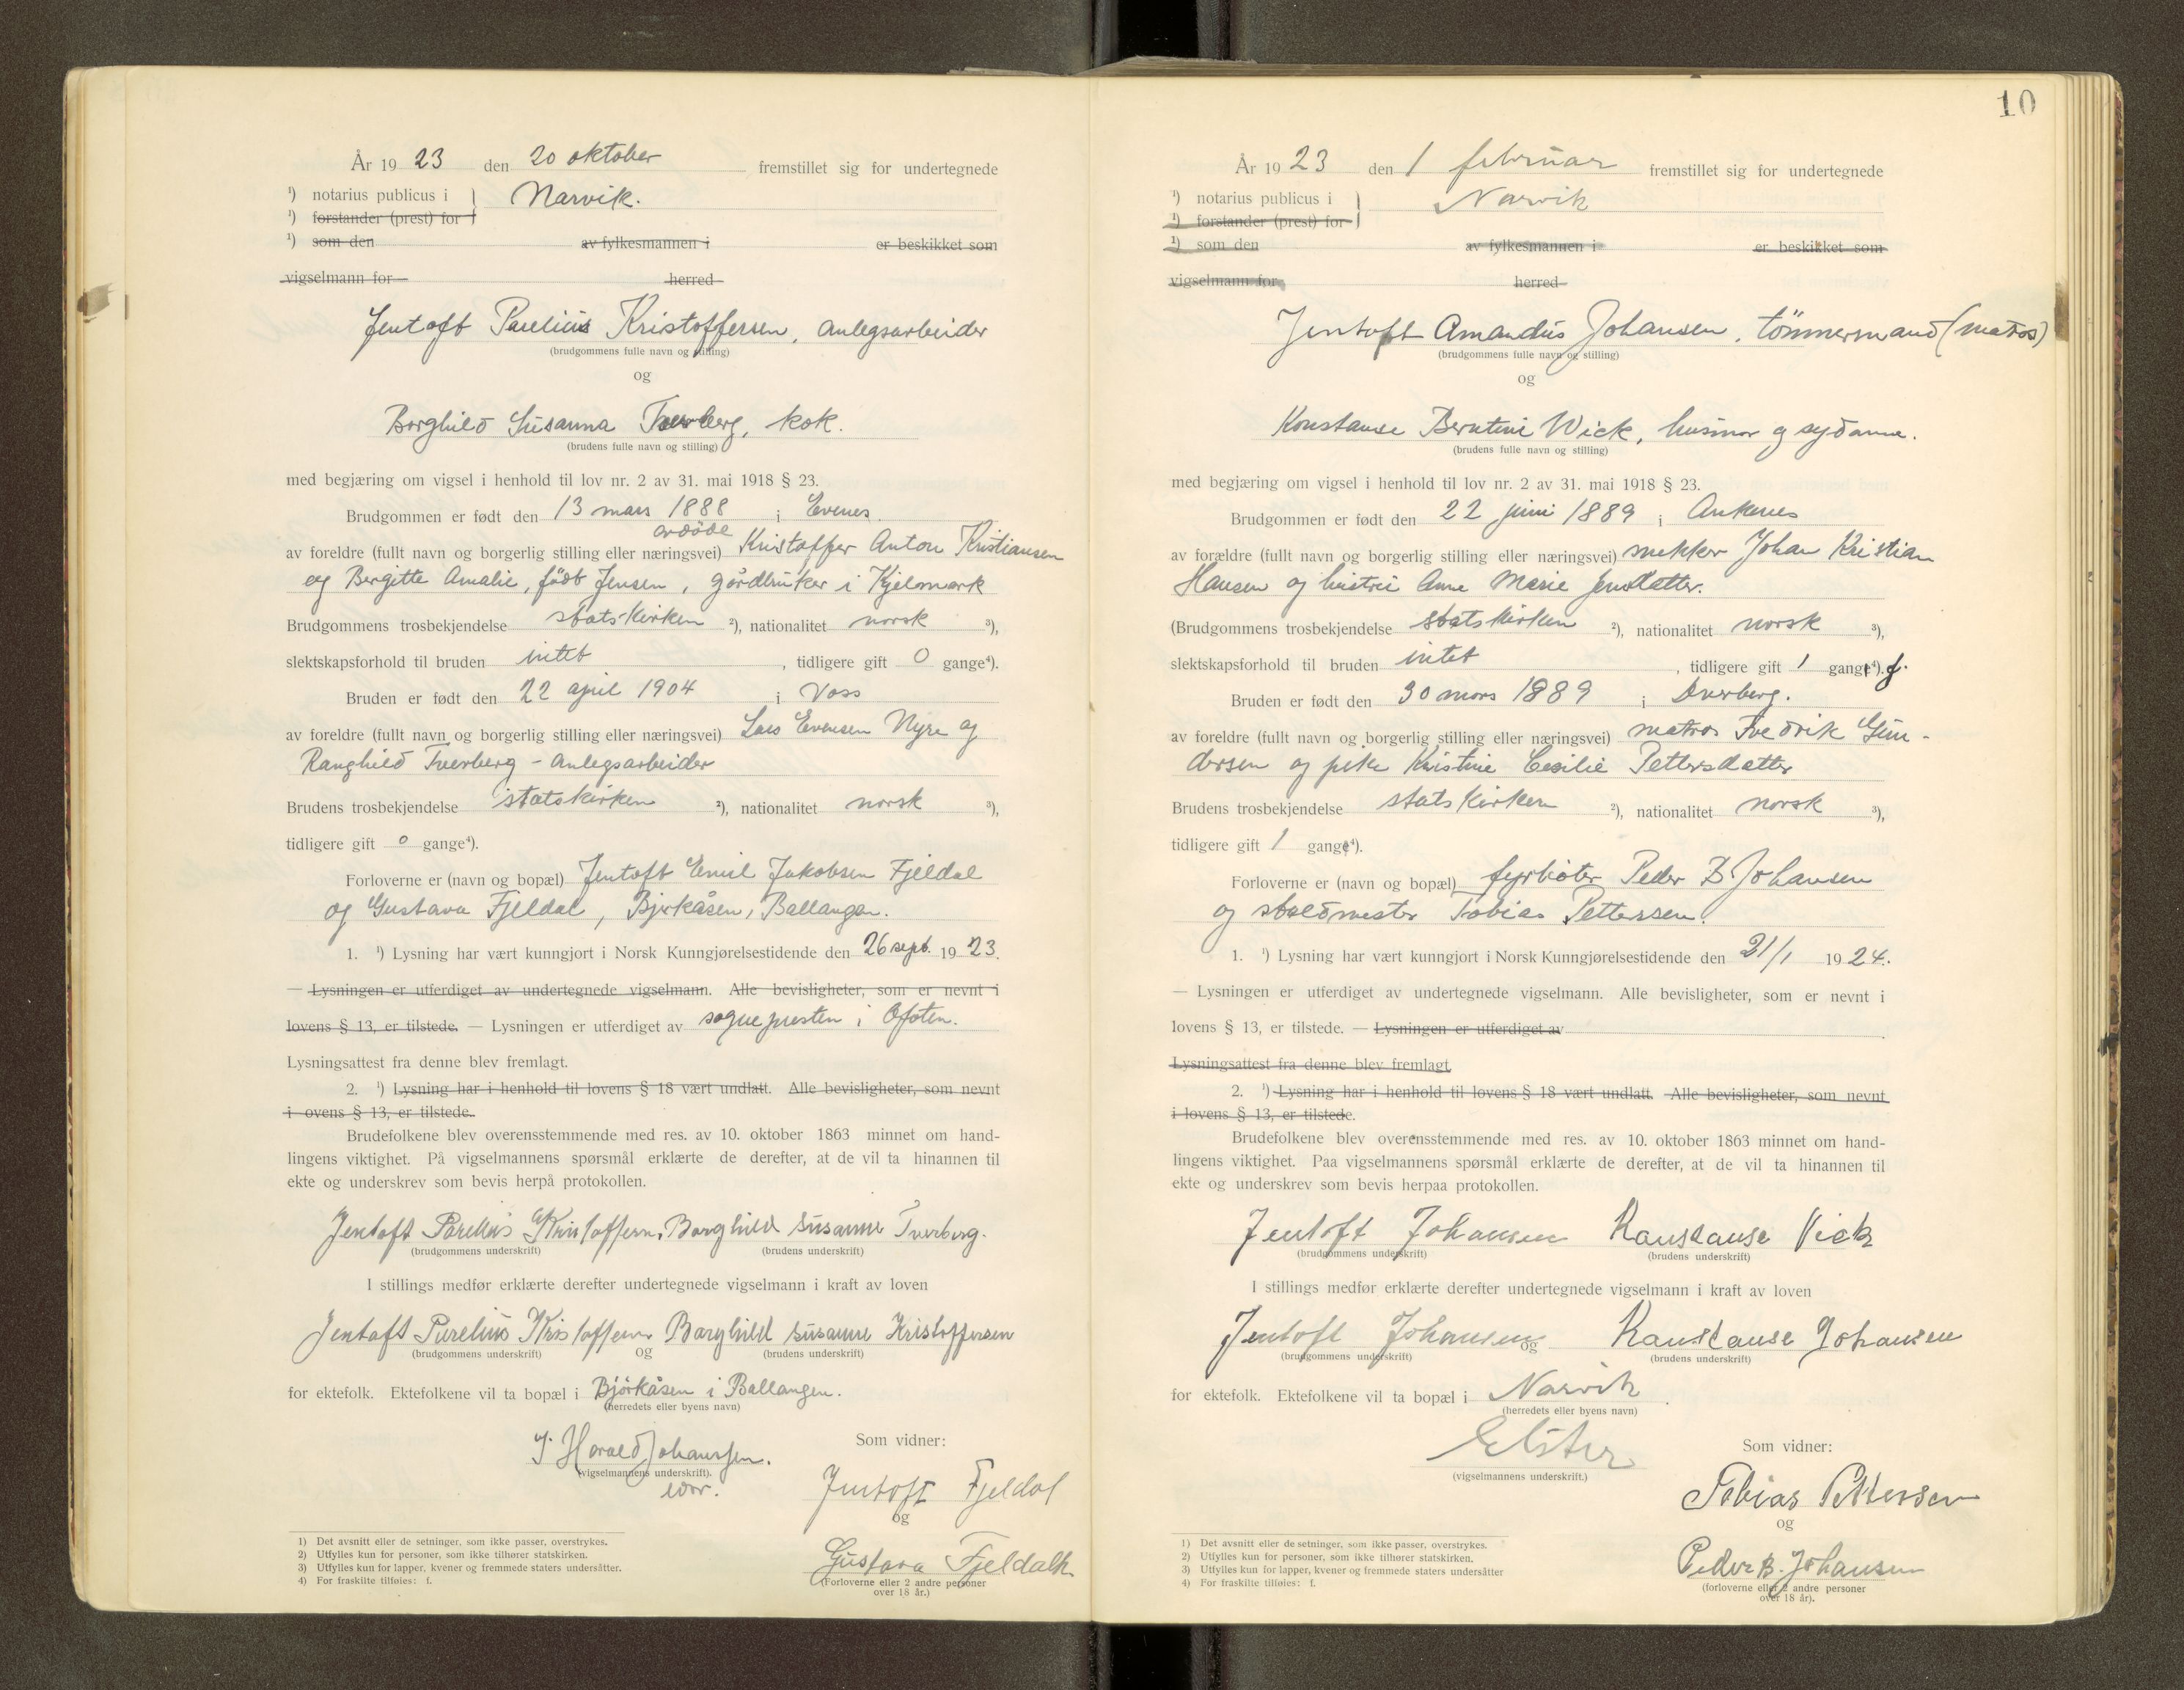 År 1923 den 20 oktober fremstillet sig for undertegnede
¹) notarius publicus i Narvik.
¹) forstander (prest) for
¹) som den av fylkesmannen i er beskikket som
vigselmann for herred
Jentoft Paulius Kristoffersen, anlegsarbeider
(brudgommens fulle navn og stilling)
og
Borghild Susanna Tverberg, kok.
(brudens fulle navn og stilling)
med begjæring om vigsel i henhold til lov nr. 2 av 31. mai 1918 § 23.
Brudgommen er født den 13 mars 1888 i Evenes.
avdöde
av foreldre (fullt navn og borgerlig stilling eller næringsvei) Kristoffer Anton Kristiansen
og Bergitte Amalie, född Jensen, gårdbruker i Kjelmark
Brudgommens trosbekjendelse statskirken ²), nationalitet norsk ³),
slektskapsforhold til bruden intet, tidligere gift 0 gange⁴).
Bruden er født den 22 april 1904 i Voss
av foreldre (fullt navn og borgerlig stilling eller næringsvei) Lars Evensen Nyre og
Ranghild Tverberg - anlegsarbeider
Brudens trosbekjendelse statskirken ²), nationalitet norsk ³),
tidligere gift 0 gange⁴).
Forloverne er (navn og bopæl) Jentoft Emil Jakobsen Fjeldal
og Gustava Fjeldal, Bjerkåsen, Ballangen.
1. ¹) Lysning har vært kunngjort i Norsk Kunngjørelsestidende den 26 sept. 1923.
— Lysningen er utferdiget av undertegnede vigselmann. Alle bevisligheter, som er nevnt i
lovens § 13, er tilstede. — Lysningen er utferdiget av sognepresten i Ofoten.
Lysningsattest fra denne blev fremlagt.
2. ¹) Lysning har i henhold til lovens § 18 vært undlatt. Alle bevisligheter, som nevnt
i ovens § 13, er tilstede.
Brudefolkene blev overensstemmende med res. av 10. oktober 1863 minnet om hand-
lingens viktighet. På vigselmannens spørsmål erklærte de derefter, at de vil ta hinannen til
ekte og underskrev som bevis herpå protokollen.
Jentoft Parelius Kristoffersen. Borghild Susanne Tverberg.
(brudgommens underskrift) (brudens underskrift)
I stillings medfør erklærte derefter undertegnede vigselmann i kraft av loven
Jentoft Parelius Kristoffersen og Borghild Susanne Kristoffersen
(brudgommens underskrift) (brudens underskrift)
for ektefolk. Ektefolkene vil ta bopæl i Björkåsen i Ballangen.
(herredets eller byens navn)
J. Harald Johanssen.
(vigselmannens underskrift).
Som vidner:
Jentoft Fjeldal
og
Gustava Fjeldahl
(Forloverne eller 2 andre personer
over 18 år.)
1) Det avsnitt eller de setninger, som ikke passer, overstrykes.
2) Utfylles kun for personer, som ikke tilhører statskirken.
3) Utfylles kun for lapper, kvener og fremmede staters undersåtter.
4) For fraskilte tilføies: f.
10
År 1923 den 1 februar fremstillet sig for undertegnede
¹) notarius publicus i Narvik
¹) forstander (prest) for
¹) som den av fylkesmannen i er beskikket som
vigselmann for herred
Jentoft Amandus Johansen, tömmermand (matros)
(brudgommens fulle navn og stilling)
og
Konstanse Berntine Wick, husmor og sydame.
(brudens fulle navn og stilling)
med begjæring om vigsel i henhold til lov nr. 2 av 31. mai 1918 § 23.
Brudgommen er født den 22 juni 1889 i Ankenes
av forældre (fullt navn og borgerlig stilling eller næringsvei) snekker Johan Kristian
Hansen og hustru Anne Marie Jensdatter.
(Brudgommens trosbekjendelse statskirken ²), nationalitet norsk ³),
slektskapsforhold til bruden intet, tidligere gift 1 gange⁴). f.
Bruden er født den 30 mars 1889 i Dverberg.
av foreldre (fullt navn og borgerlig stilling eller næringsvei) matros Fredrik Gun-
dersen og pike Kristine Cecilie Pettersdatter
Brudens trosbekjendelse statskirken ²), nationalitet norsk ³),
tidligere gift 1 gange⁴).
Forloverne er (navn og bopæl) fyrböter Peder B Johansen
og staldmester Tobias Pettersen.
1. ¹) Lysning har vært kunngjort i Norsk Kunngjørelsestidende den 21/1 1924.
— Lysningen er utferdiget av undertegnede vigselmann. Alle bevisligheter, som er nevnt i
lovens § 13, er tilstede. — Lysningen er utferdiget av
Lysningsattest fra denne blev fremlagt
2. ¹) Lysning har i henhold til lovens § 18 vært undlatt. Alle bevisligheter, som nevnt
i lovens § 13, er tilstede.
Brudefolkene blev overensstemmende med res. av 10. oktober 1863 minnet om hand-
lingens viktighet. Paa vigselmannens spørsmål erklærte de derefter, at de vil ta hinannen til
ekte og underskrev som bevis herpaa protokollen.
Jentoft Johansen Konstanse Vick
(brudgommens underskrift) (brudens underskrift)
I stillings medfør erklærte derefter undertegnede vigselmann i kraft av loven
Jentoft Johansen og Konstanse Johansen
(brudgommens underskrift) (brudens underskrift)
for ektefolk. Ektefolkene vil ta bopæl i Narvik.
(herredets eller byens navn)
Elster
(vigselmannens underskrift.)
Som vidner:
Tobias Pettersen
og
Peder B. Johansen
(forloverne eller 2 andre personer
over 18 år).
1) Det avsnitt eller de setninger, som ikke passer, overstrykes.
2) Utfylles kun for personer, som ikke tilhører statskirken.
3) Utfylles kun for lapper, kvener og fremmede staters undersåtter
4) For fraskilte tilføies: f.